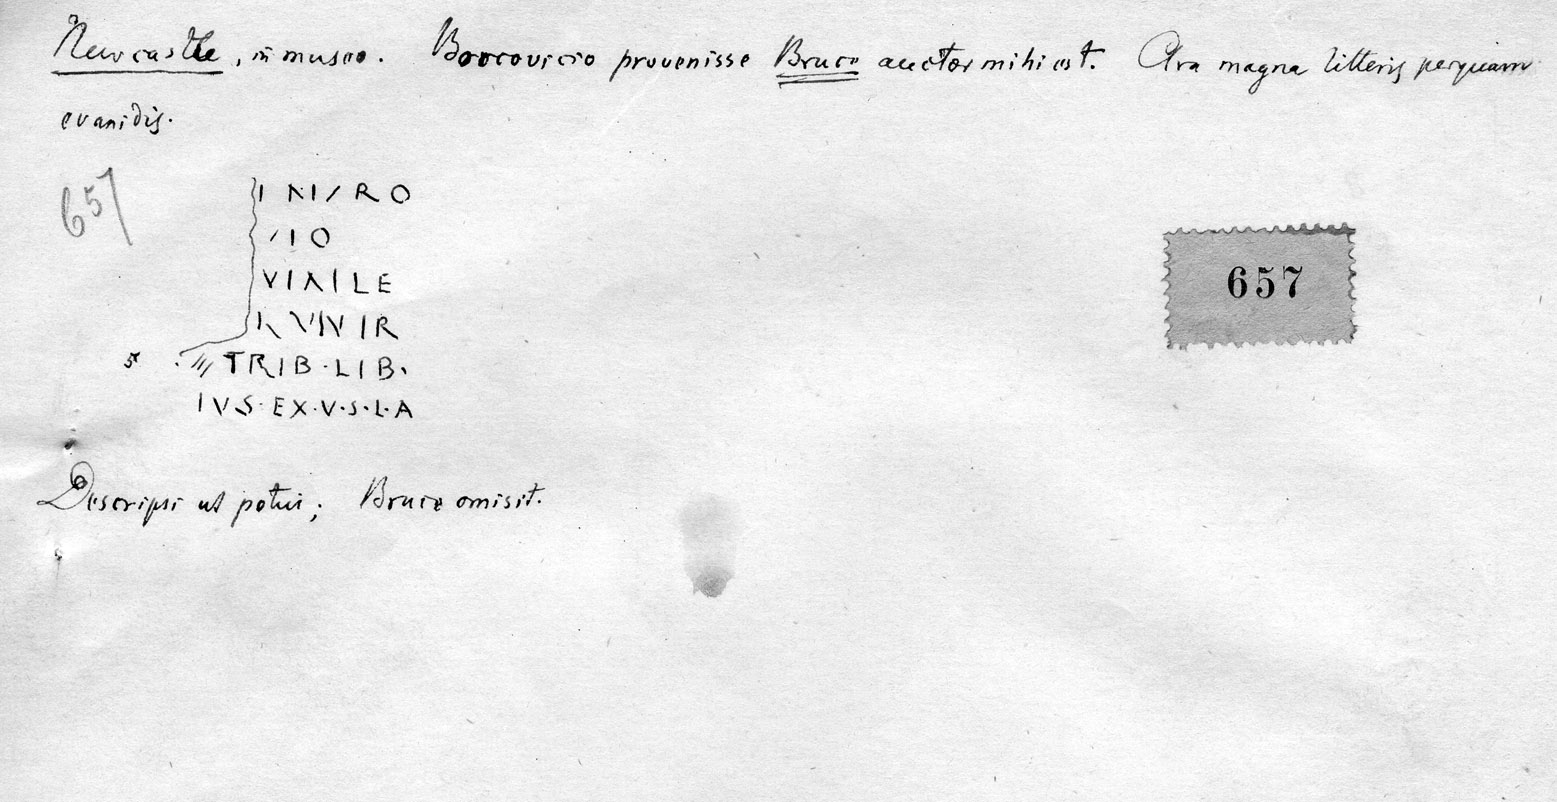 Newcastle, in museo. Borcovicio provenisse Bruce auctor mihi est. Ara magna litteris perquam
evanidis.
657
I N I / R O
/ I O
V I A I L E
K V I V I R
5 TRIB·LIB·
IVS·EX·V·S·L·A
657
Descripsi ut potui; Bruce omisit.